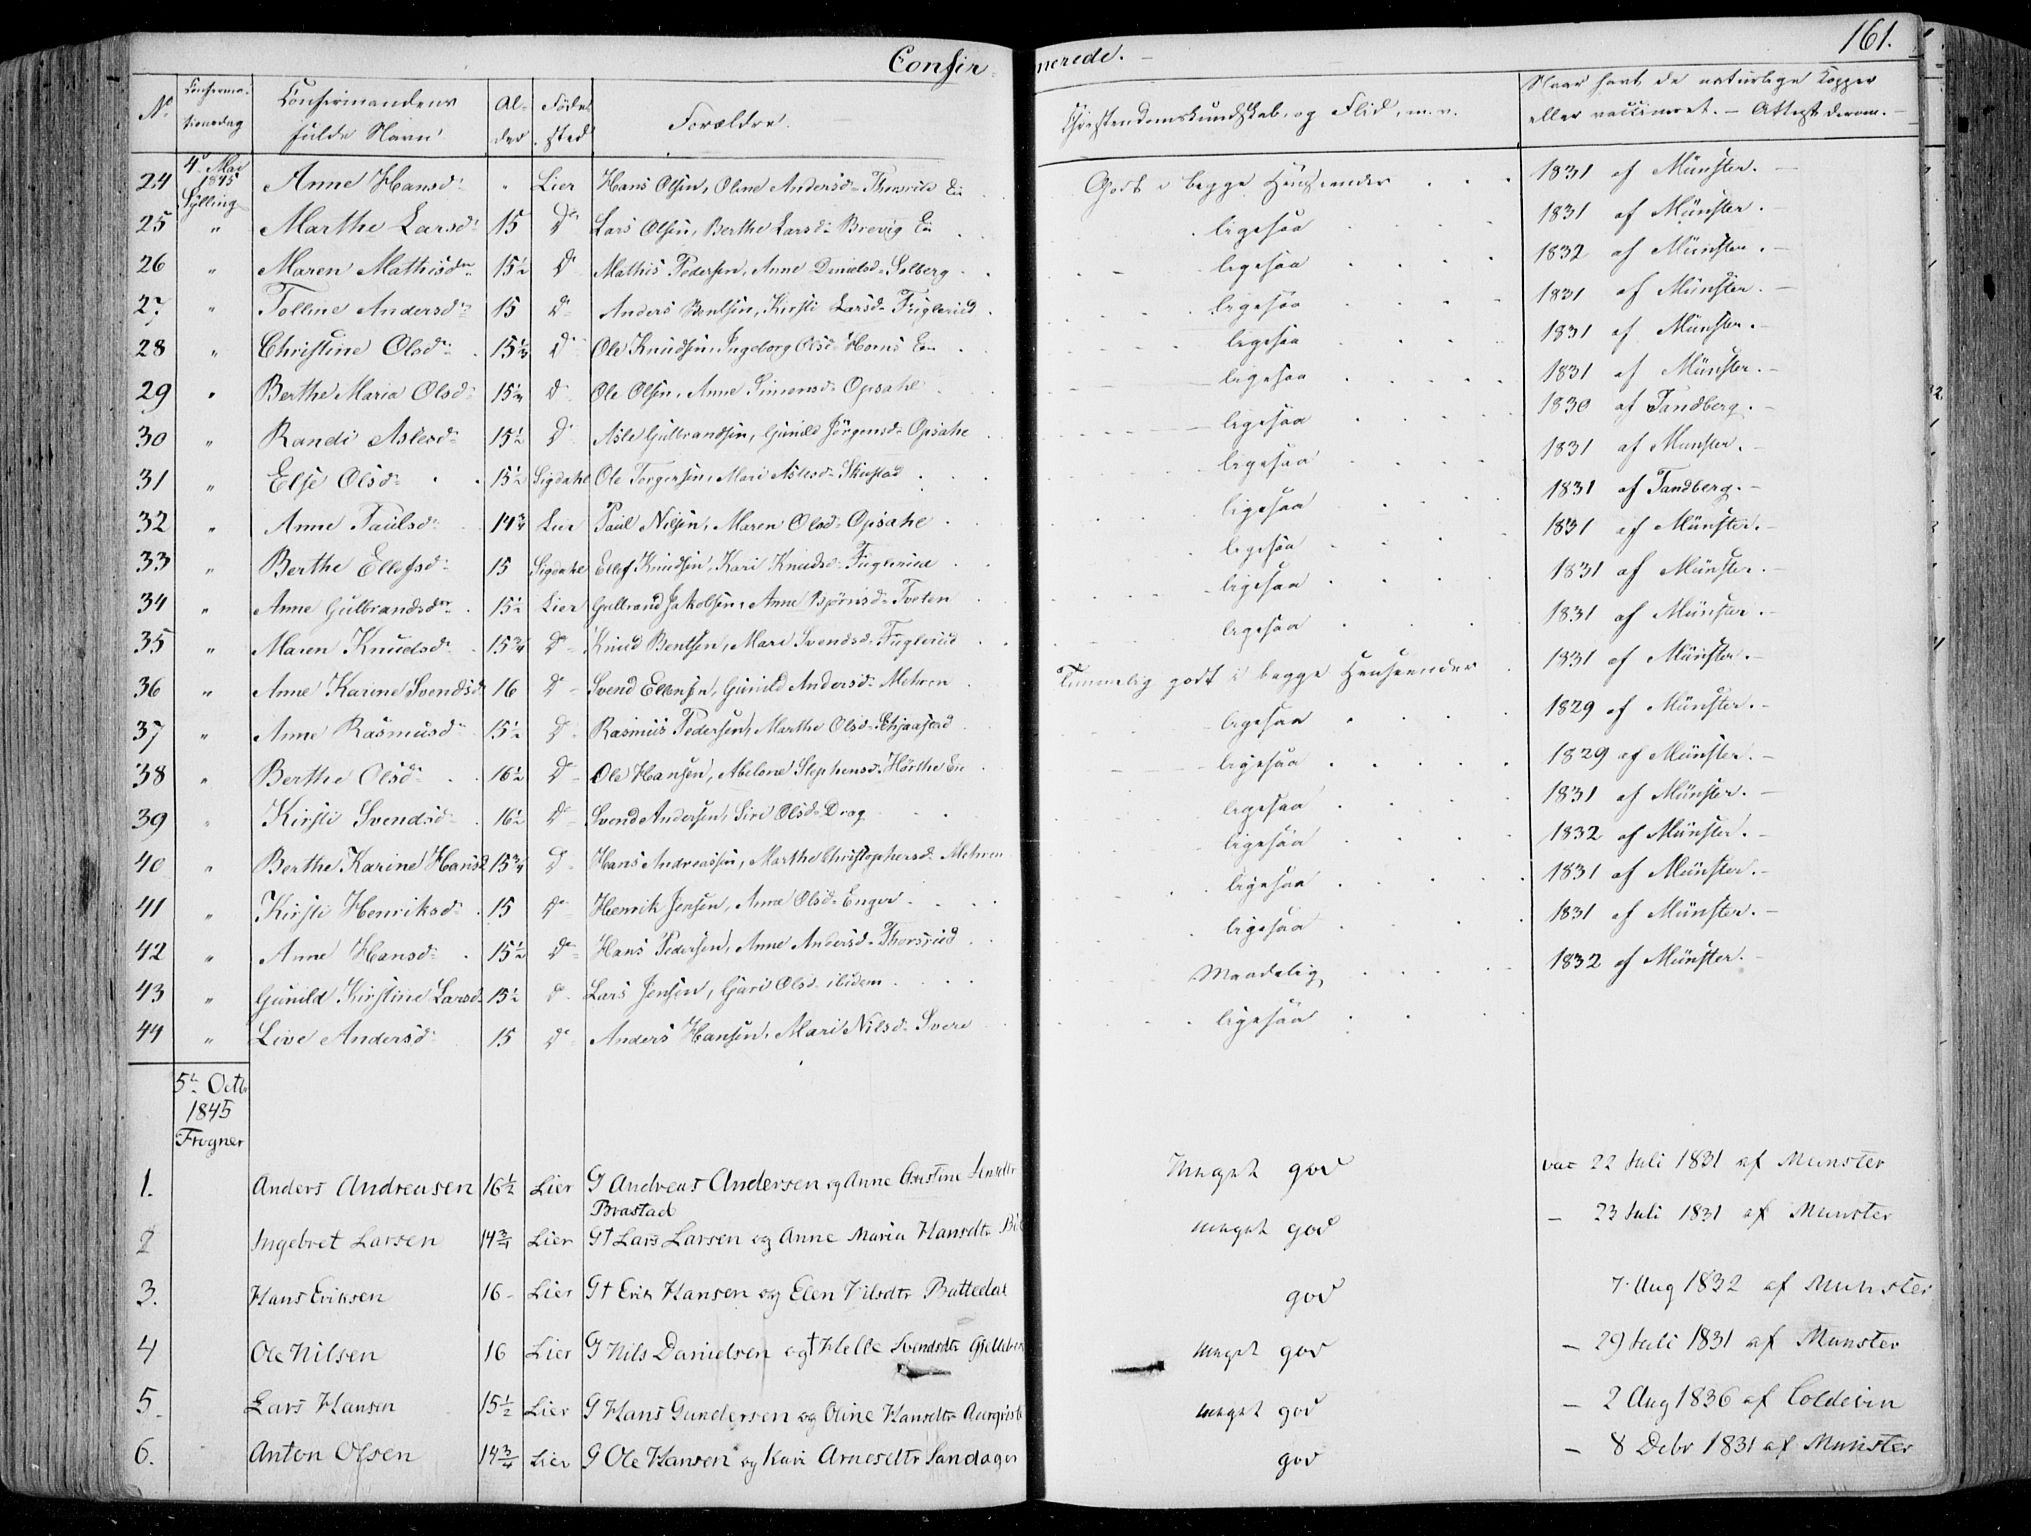 Confirmerede. 161.
No Confirmationsdag Confirmandens fulde Navn Alder Fødested Forældre. Christendomskundskab, og Flid, m. v. Naar havt de naturlige Kopper eller vaccineret. — Attest derom. —
4d Mai 1845 Sylling
24 Anne Hansd: " Lier Hans Olsen, Oline Andersd: Ei Godt i begge Henseender 1831 af Münster. —
25 " Marthe Larsd: 15 Do Lars Olsen, Berthe Larsd: Brevig Ei ligesaa 1831 af Münster. —
26 " Maren Mathisdr 15½ Do Mathis Pedersen, Anne Danielsd: Solberg ligesaa 1832 af Münster. —
27 " Tolline Andersd: 15 Do Anders Bentsen, Kirsti Larsd: Fuglerud ligesaa 1831 af Münster. —
28 " Christine Olsd: Do Ole Knudsen, Ingeborg Olsd: Ei ligesaa 1831 af Münster. —
29 " Berthe Maria Olsd: Do Ole Olsen, Anne Simensd: Opsahl ligesaa 1831 af Münster. —
30 " Randi Aslesd: 15½ Do Asle Gulbrandsen, Gunild Jörgensd: Opsahl ligesaa 1830 af Tandberg. —
31 " Else Olsd: 15½ Sigdahl Ole Torgersen, Mari Aslesd: ligesaa 1831 af Munster. —
32 " Anne Paulsd: 14¾ Lier Paul Nilsen, Maren Olsd: Opsahl ligesaa 1831 af Tandberg. —
33 " Berthe Ellefsd: 15 Sigdahl Ellef Knudsen, Kari Knudsd: Fuglerud ligesaa 1831 af Münster. —
34 " Anne Gulbrandsdr 15½ Lier Gulbrand Jakobsen, Anne Bjørnsd: Tveten ligesaa 1831 af Münster. —
35 " Maren Knudsd: 15¾ Do Knud Bentsen, Mari Svendsd: Fuglerud ligesaa 1831 af Münster. —
36 " Anne Karine Svendsd 16 Do Svend Ellensen, Gunild Andersd: Mehren Temmelig godt i begge Henseender 1831 af Münster. —
37 " Anne Rasmusd: 15½ Do Rasmus Pedersen, Marthe Olsd: ligesaa 1829 af Münster. —
38 " Berthe Olsd: 16½ Do Ole Hansen, Abelone Stephensd: Hörthe Ei ligesaa 1829 af Münster. —
39 " Kirsti Svendsd: 16½ Do Svend Andersen, Siri Olsd: Drog ligesaa 1831 af Münster. —
40 " Berthe Karine Hansd 15¾ Do Hans Andreassen, Marthe Christophersd: Mehren ligesaa 1832 af Münster. —
41 " Kirsti Henriksd: 15 Do Henrik Jensen, Anne Olsd: Enger ligesaa 1831 af Münster. —
42 " Anne Hansd: 15½ Do Hans Pedersen, Anne Andersd: Thorsrud ligesaa 1831 af Münster. —
43 " Gunild Kirstine Larsd: 15½ Do Lars Jensen, Gurø Olsd: ibidem Maadelig 1832 af Münster. —
44 " Live Andersd: 15 Do Anders Hansen, Mari Nilsd: Svere ligesaa
5te Octbr 1845 Frogner
1. Anders Andreasen 16½ Lier G Andreas Andersen og Anne Cristine Brastad Meget god vac 22 Juli 1831 af Munster
2 Ingebret Larsen 14¾ Lier G† Lars Larsen og Anne Maria Hansdtr meget god — 23 Juli 1831 af Munster
3. Hans Eriksen 16 Lier G† Erik Hansen og Elen Nilsdtr Battedal god 7 Aug 1832 af Munster
4 Ole Nilsen 16 Lier G Nils Danielsen og † Helle Svendsdtr meget god — 29 Juli 1831 af Munster
5. Lars Hansen 15½ Lier G Hans Gundersen og Oline Hansdtr meget god — 2 Aug 1836 af Coldevin
6. Anton Olsen 14¾ Lier G Ole Hansen og Kari Arnesdtr Sandager god — 8 Debr 1831 af Munster